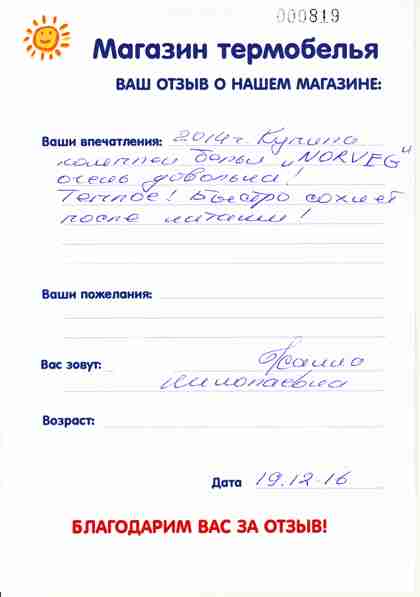 000819
Магазин термобелья
ВАШ ОТЗЫВ О НАШЕМ МАГАЗИНЕ:
Ваши впечатления: 2014г. Купила
комплект белья „NORVEG"
очень довольна!
Теплое! Быстро сохнет
после
Ваши пожелания:
Вас зовут:
Николаевна
Возраст:
Дата 19.12.16
БЛАГОДАРИМ ВАС ЗА ОТЗЫВ!